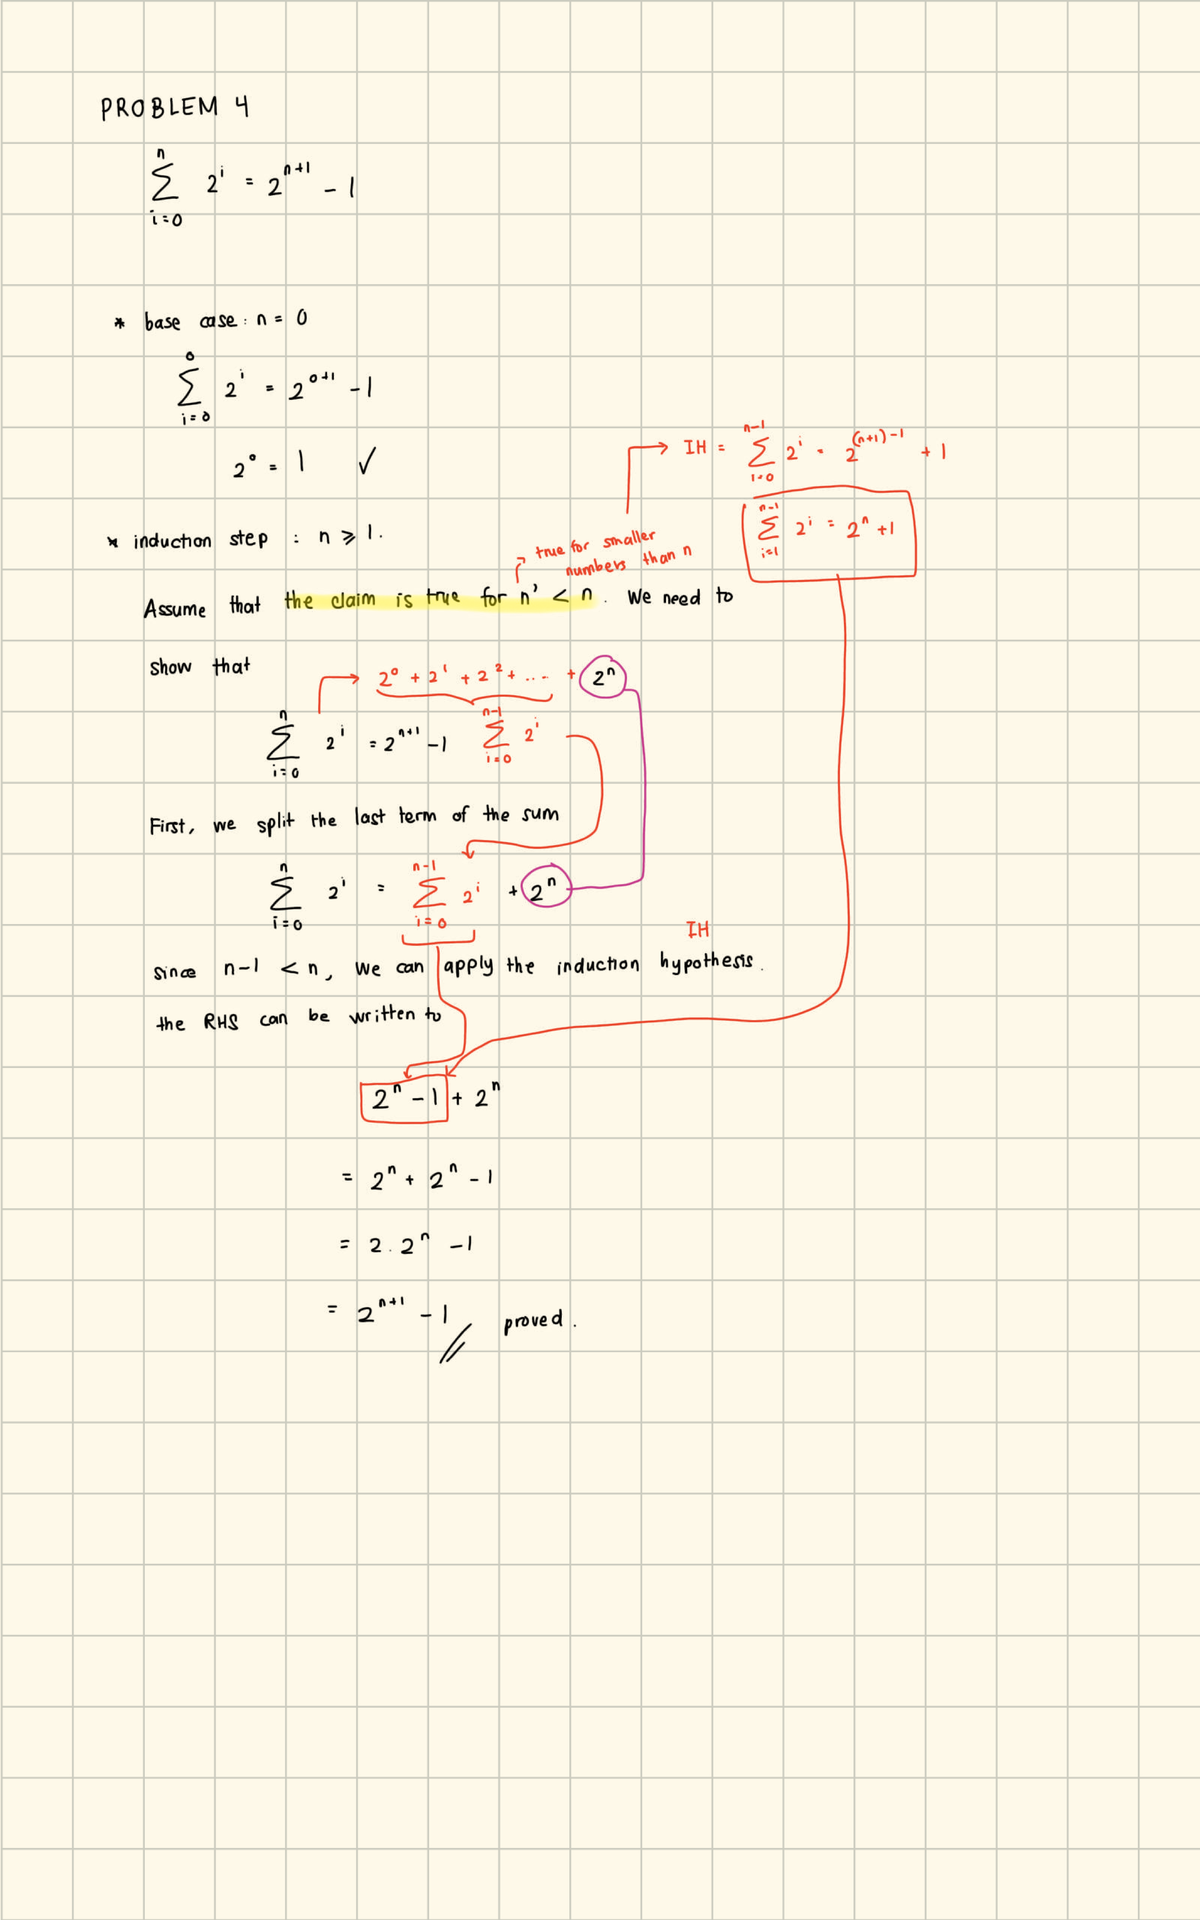 PROBLEM 4
n
∑ 2^i = 2^(n+1) - 1
i=0
* base case: n = 0
0
∑ 2^i = 2^(0+1) - 1
i=0
2^0 = 1 ✓
n-1
→ IH = ∑ 2^i = 2^((n+1)-1) + 1
i=0
n-1
∑ 2^i = 2^n + 1
i=1
* induction step : n ≥ 1.
true for smaller
numbers than n
Assume that the claim is true for n' < n. We need to
show that
→ 2^0 + 2^1 + 2^2 + .... + 2^n
n
∑ 2^i = 2^(n+1) - 1
i=0
n-1
∑ 2^i
i=0
First, we split the last term of the sum
n n-1
∑ 2^i = ∑ 2^i + 2^n
i=0 i=0
IH
since n-1 < n, we can apply the induction hypothesis.
the RHS can be written to
2^n - 1 + 2^n
= 2^n + 2^n - 1
= 2 . 2^n - 1
= 2^(n+1) - 1 // proved.